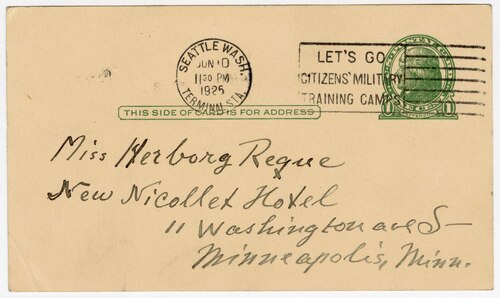 SEATTLE WASH.
JUN 10
11 30 PM
1925
TERMINAL STA.
LET'S GO
CITIZENS' MILITARY
TRAINING CAMPS
THIS SIDE OF CARD IS FOR ADDRESS
Miss Herborg Reque
New Nicollet Hotel
11 Washington ave S-
Minneapolis, Minn.